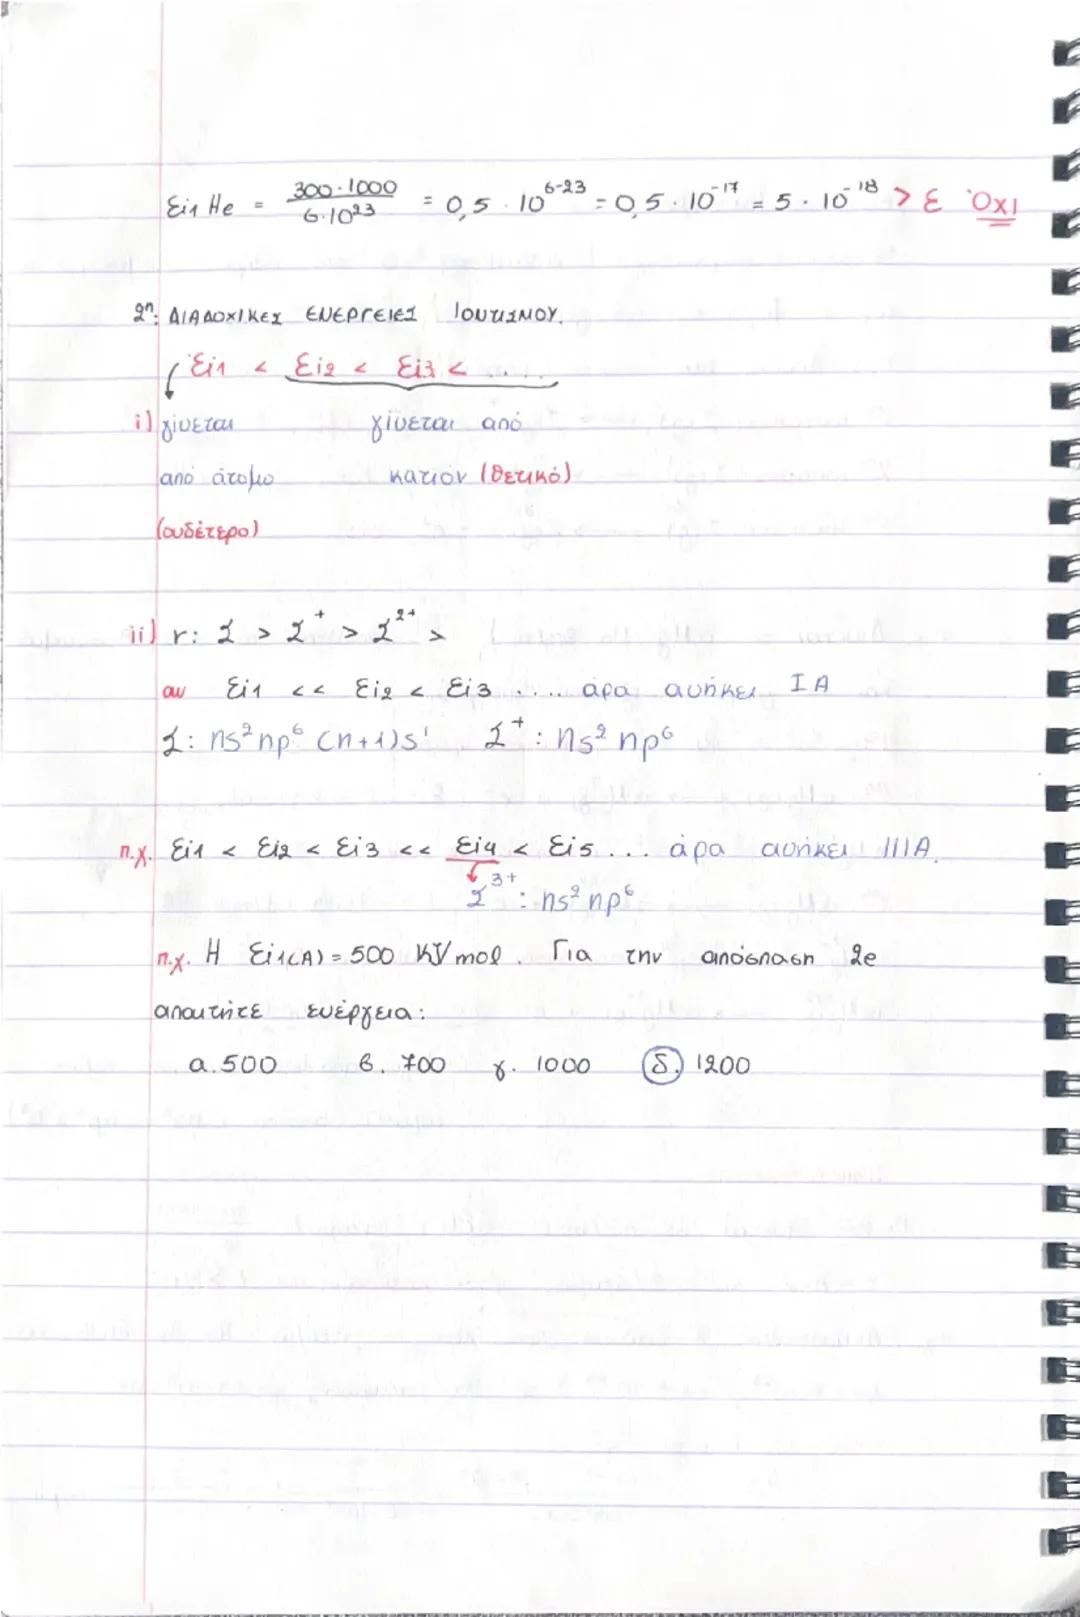 Ei1 He = 300·1000 / 6·10²³ = 0,5 · 10⁶⁻²³ = 0,5 · 10⁻¹⁷ = 5 · 10⁻¹⁸ > ε Όχι
2η: ΔΙΑΔΟΧΙΚΕΣ ΕΝΕΡΓΕΙΕΣ ΙΟΝΤΙΣΜΟΥ.
Ei1 < Ei2 < Ei3 < .....
i) γίνεται γίνεται από
από άτομο κατιόν (θετικό)
(ουδέτερο)
ii) r: Σ > Σ⁺ > Σ²⁺ >
αν Ei1 << Ei2 < Ei3 .... άρα ανήκει ΙΑ
Σ: ns² np⁶ (n+1)s¹ Σ⁺: ns² np⁶
π.χ. Ei1 < Ei2 < Ei3 << Ei4 < Ei5 ... άρα ανήκει ΙΙΙΑ.
Σ³⁺: ns² np⁶
π.χ. Η Ei1(A) = 500 KJ/mol. Για την απόσπαση 2e
απαιτήτε ενέργεια:
α. 500 β. 700 γ. 1000 δ. 1200